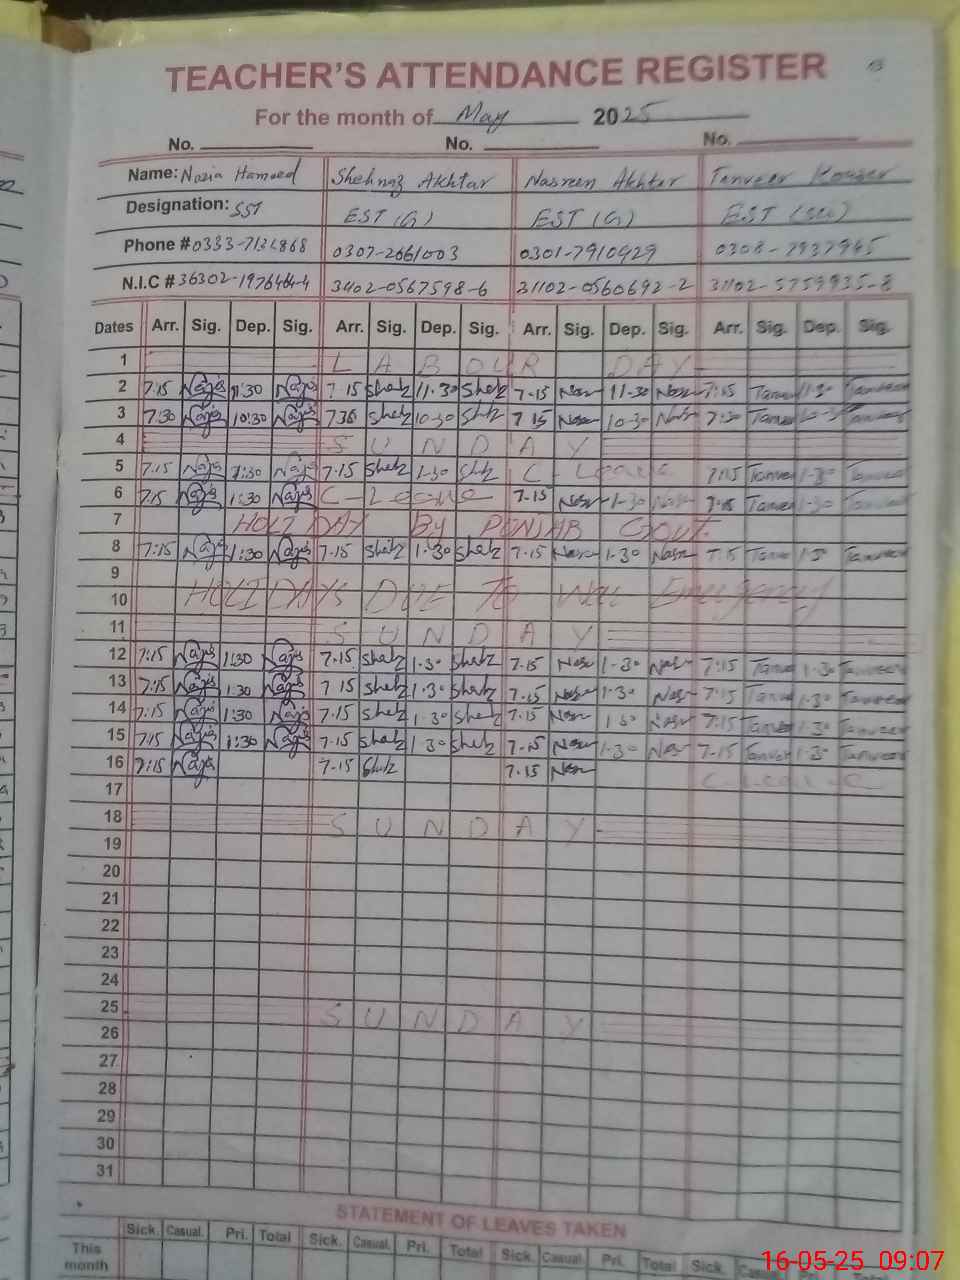 TEACHER'S ATTENDANCE REGISTER 13
For the month of May 2025
No. No. No.
Name: Nazia Hameed Shehnaz Akhtar Nasreen Akhtar Tanveer Kouser
Designation: SST EST (G) EST (G) EST
Phone # 0333-7134868 0307-2661003 0301-7910929 0308-7937945
N.I.C # 3402-0567598-6 31102-0560692-2 31102-5759935-8
Dates Arr. Sig. Dep. Sig. Arr. Sig. Dep. Sig. Arr. Sig. Dep. Sig. Arr. Sig. Dep. Sig.
1 LABOUR DAY
2 7:15 Najis 11:30 Najis 7-15 Shehz 11-30 Shehz 7-15 Nasr 11-30 Nasr 7:15 Tanveer 11-30 Tanveer
3 7:30 Najis 10:30 Najis 730 Shehz 10-30 Shehz 7-15 Nasr 10-30 Nasr Tanveer Tanveer
4 SUNDAY
5 7:15 Najis 1:30 Najis 7-15 Shehz 1-30 Shehz C-Leave 7:15 Tanveer 1-30 Tanveer
6 7:15 Najis 1:30 Najis C-Leave 7-15 Nasr 1-30 Nasr 7:15 Tanveer 1-30 Tanveer
7 HOLIDAY By PUNJAB Govt.
8 7:15 Najis 1:30 Najis 7-15 Shehz 1-30 Shehz 7-15 Nasr 1-30 Nasr 7:15 Tanveer 1-30 Tanveer
9
HOLIDAYS DUE TO War Emergency
10
11 SUNDAY
12 7:15 Najis 1:30 Najis 7-15 Shehz 1-30 Shehz 7-15 Nasr 1-30 Nasr 7-15 Tanveer 1-30 Tanveer
13 7:15 Najis 1:30 Najis 7-15 Shehz 1-30 Shehz 7-15 Nasr 1-30 Nasr 7-15 Tanveer 1-30 Tanveer
14 7:15 Najis 1:30 Najis 7-15 Shehz 1-30 Shehz 7-15 Nasr 1-30 Nasr 7-15 Tanveer 1-30 Tanveer
15 7:15 Najis 1:30 Najis 7-15 Shehz 1-30 Shehz 7-15 Nasr 1-30 Nasr 7-15 Tanveer 1-30 Tanveer
16 7:15 Najis 7-15 Shehz 7-15 Nasr C-Leave
17
18 SUNDAY
19
20
21
22
23
24
25 SUNDAY
26
27
28
29
30
31
STATEMENT OF LEAVES TAKEN
Sick. Casual. Pri. Total Sick. Casual. Pri. Total Sick. Casual. Pri. Total Sick. Casual.
This month
16-05-25 09:07